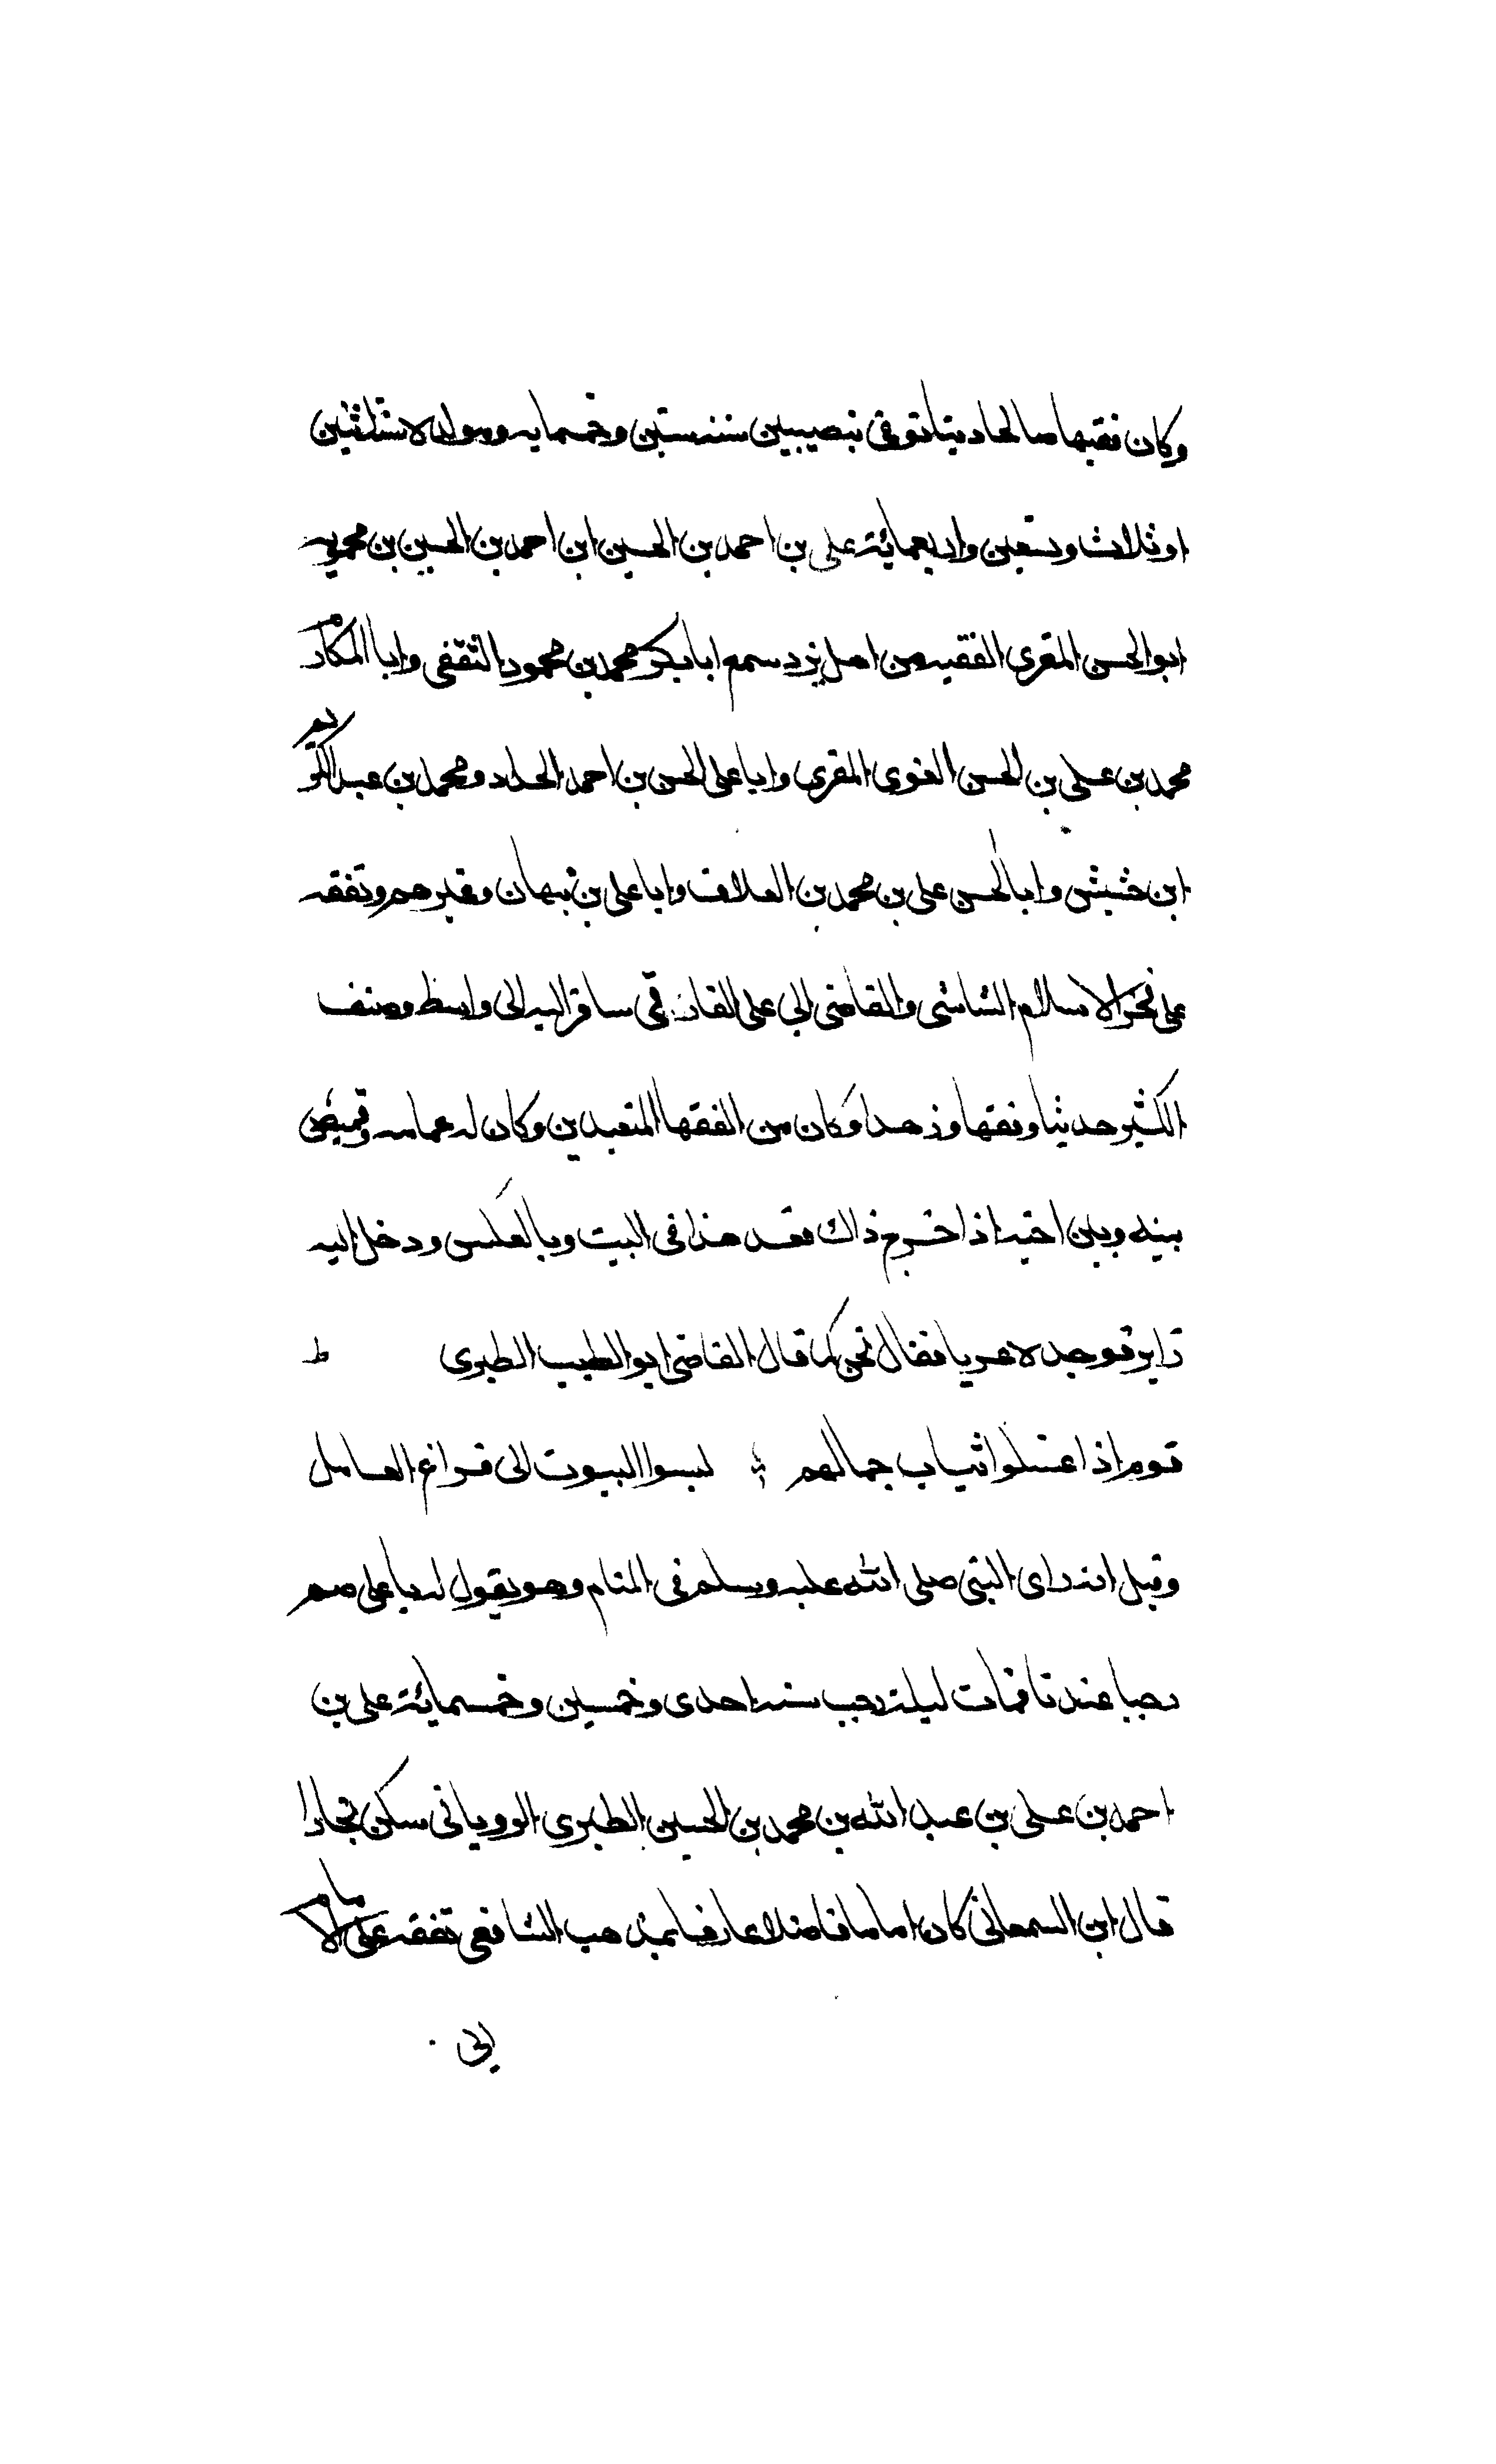 وكان فقيها صالحا دينا توفى بنصيبين سنه ستين وخمسمايه ومولده سنة اثنتين
او ثلاث وتسعين واربعمائة علي بن احمد بن الحسين ابن احمد بن الحسين بن محمويه
ابو الحسن المقري الفقيه من اهل يزد سمع ابا بكر محمد بن محمود الثقفي وابا المكارم
محمد بن علي بن الحسن الغنوي المقري وابا علي الحسن بن احمد الحداد ومحمد بن عبد الكريم
ابن خشيش وابا الحسن علي بن محمد بن العلاف وابا علي بن نبهان وغيرهم وتفقه
على فخر الاسلام الشاشي والقاضي ابي علي الفارقي سافر اليه الى واسط وصنف
الكثير حديثا وفقها وزهدا وكان من الفقها المتعبدين وكان له عمامه وقميص
بينه وبين اخيه اذا خرج ذاك قعد هذا في البيت وبالعكس ودخل اليه
زاير فوجده عريا فقال نحن كما قال القاضي ابو الطيب الطبري
قوم اذا غسلوا ثياب جمالهم لبسوا البيوت الى فراغ الغاسل
وقيل انه راى النبي صلى الله عليه وسلم في المنام وهو يقول له يا علي صم
رجبا عندنا فمات ليلة رجب سنه احدى وخمسين وخمسمائة علي بن
احمد بن علي بن عبد الله بن محمد بن الحسين الطبري الروياني سكن بخارا
قال ابن السمعاني كان اماما فاضلا عارفا بمذهب الشافعي تفقه على الامام
ابي